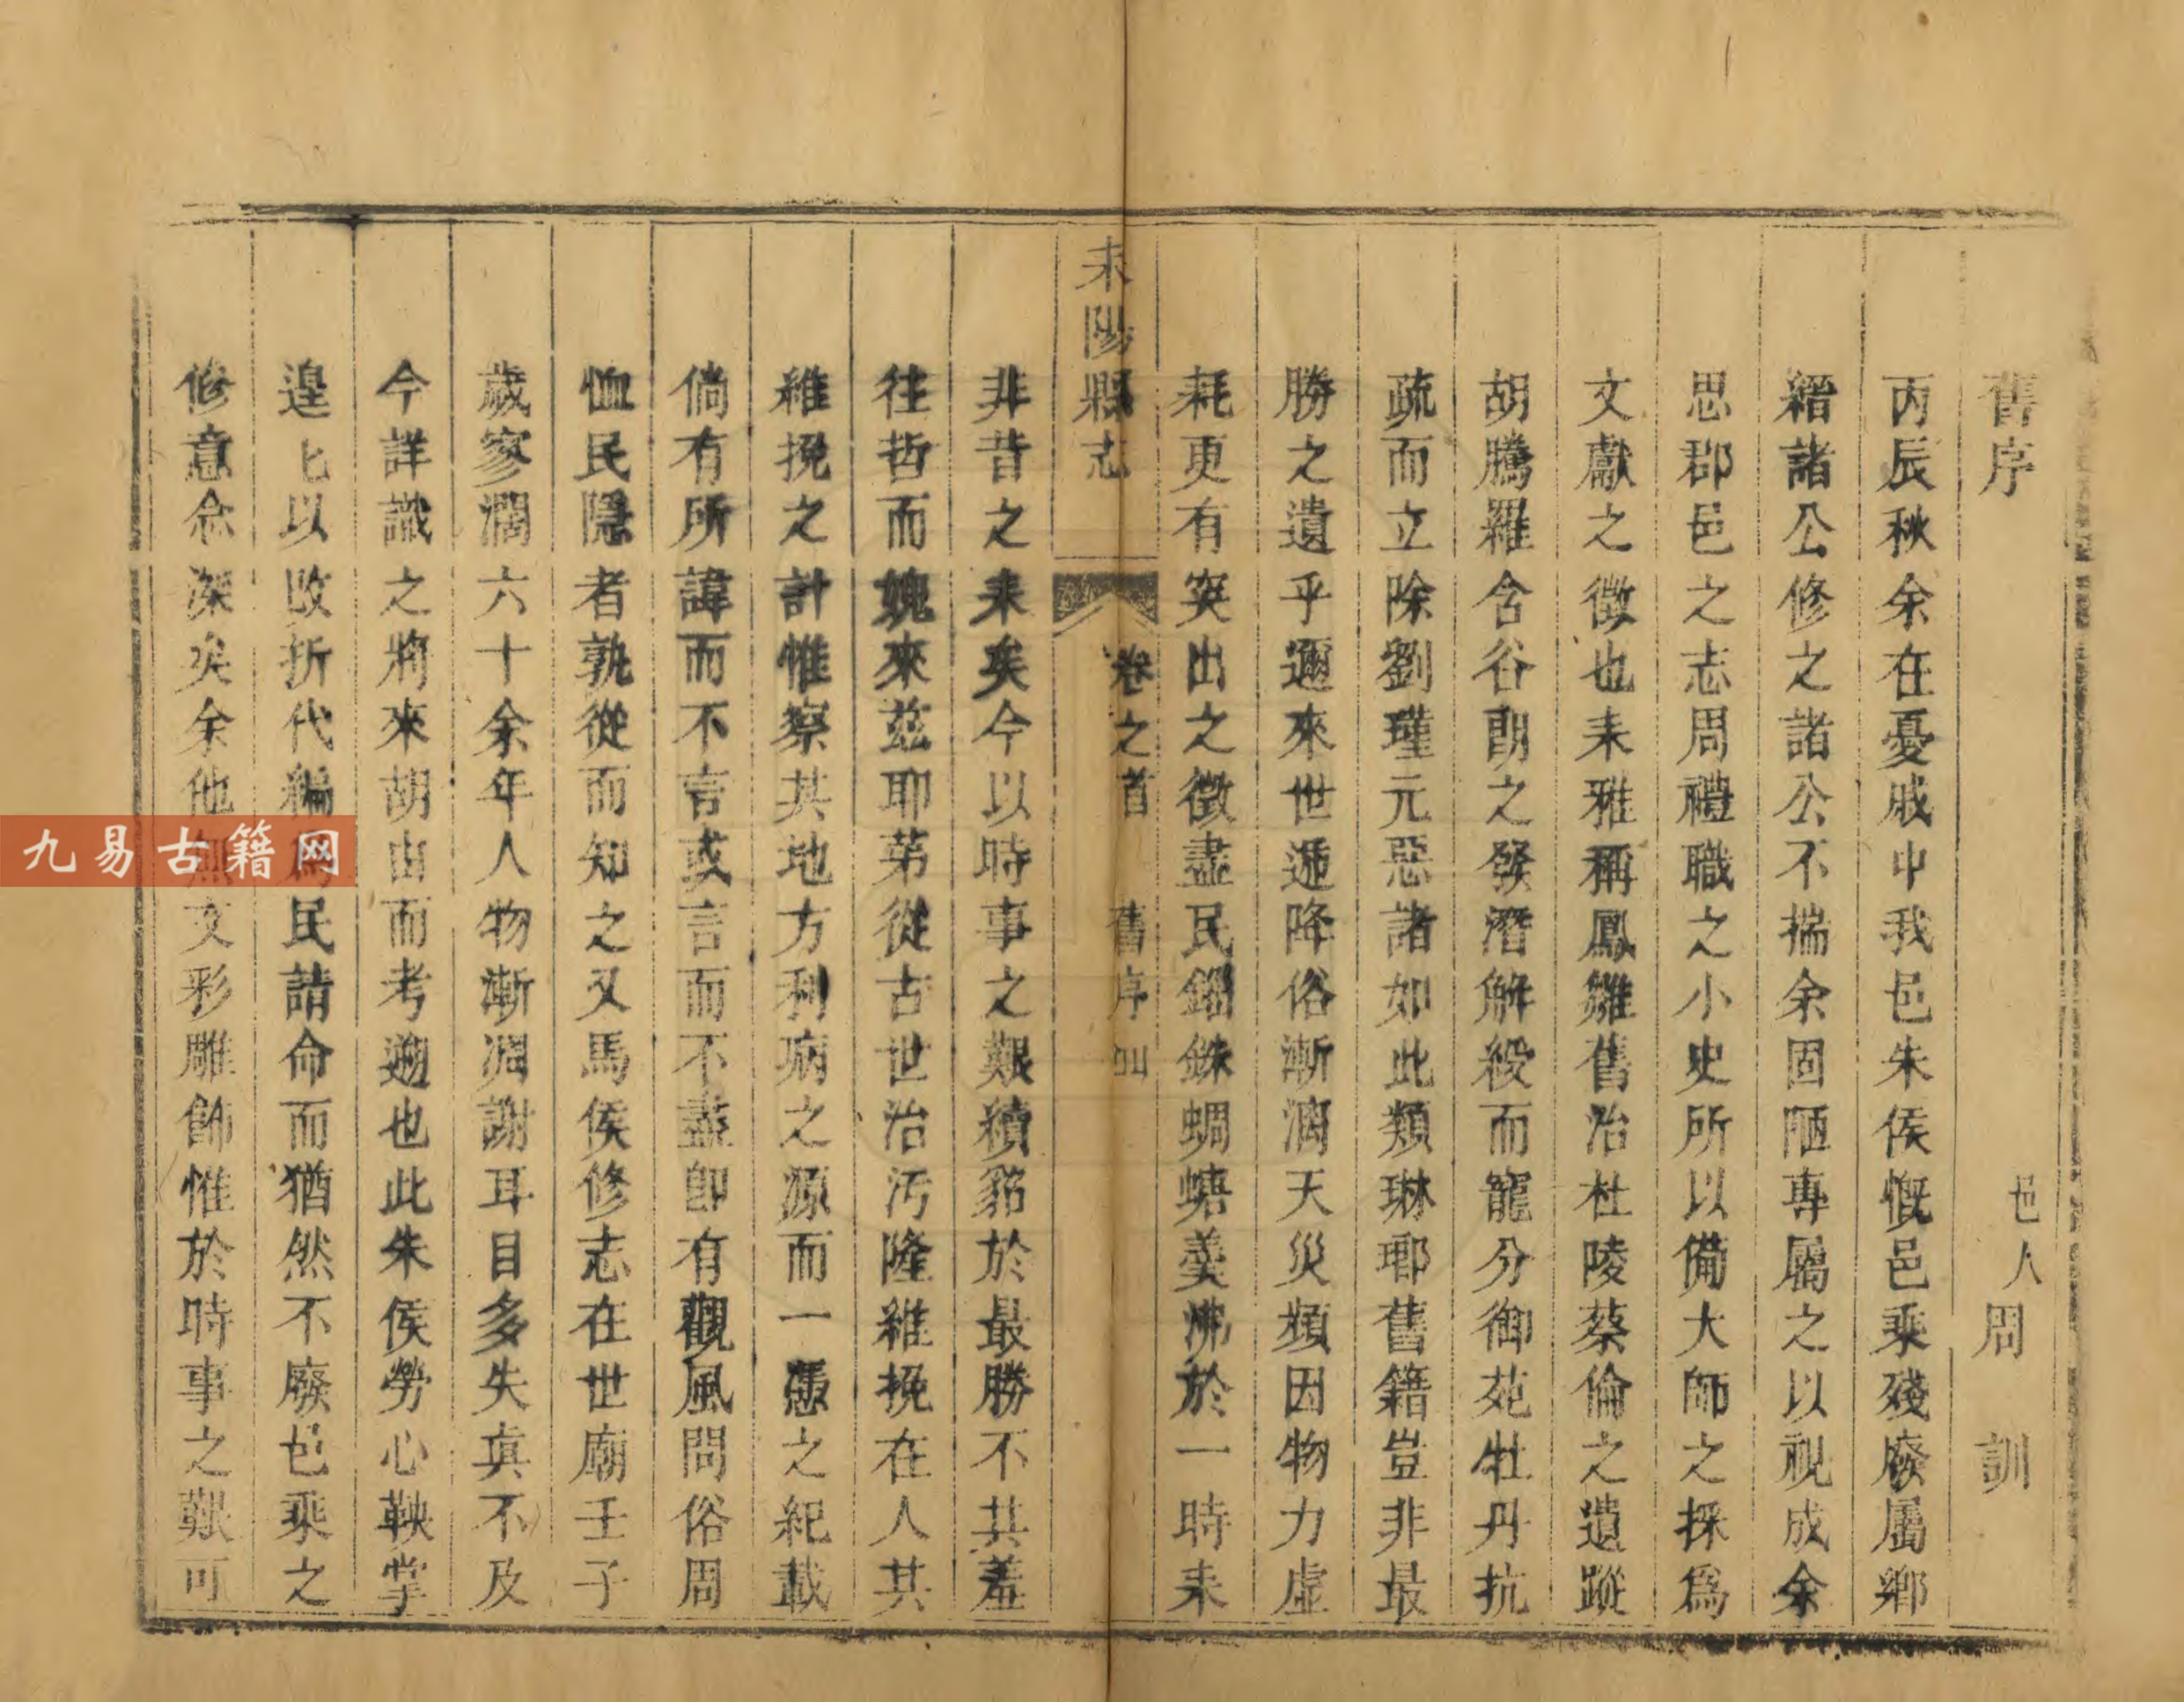 舊序
邑人周訓
丙辰秋余在憂戚中我邑朱侯慨邑乘殘廢屬鄉
縉諸公修之諸公不揣余固陋專屬之以視成余
思郡邑之志周禮職之小史所以備大師之採爲
文獻之徵也耒雅稱鳳雛舊治杜陵蔡倫之遺蹤
胡騰羅含谷朗之發潛解綬而寵分御苑牡丹抗
疏而立除劉瑾元惡諸如此類琳瑯舊籍豈非最
勝之遺乎邇來世遞降俗漸漓天災頻因物力虛
耗更有突出之徵盡民錙銖蜩螗羹沸於一時耒
耒陽縣志
卷之首 舊序 四
非昔之耒矣今以時事之艱獷貉於最勝不其羞
往哲而媿來茲耶第從古世治汚隆維挽在人其
維挽之計惟察其地方利病之源而一慿之紀載
倘有所諱而不言或言而不盡卽有觀風問俗周
恤民隱者孰從而知之又馬侯修志在世廟壬子
歲寥濶六十余年人物漸凋謝耳目多失真不及
今詳識之將來胡由而考遡也此朱侯勞心鞅掌
遑匕以改折代編爲民請命而猶然不廢邑乘之
修意念深矣余他無文彩雕飾惟於時事之艱可
九易古籍网